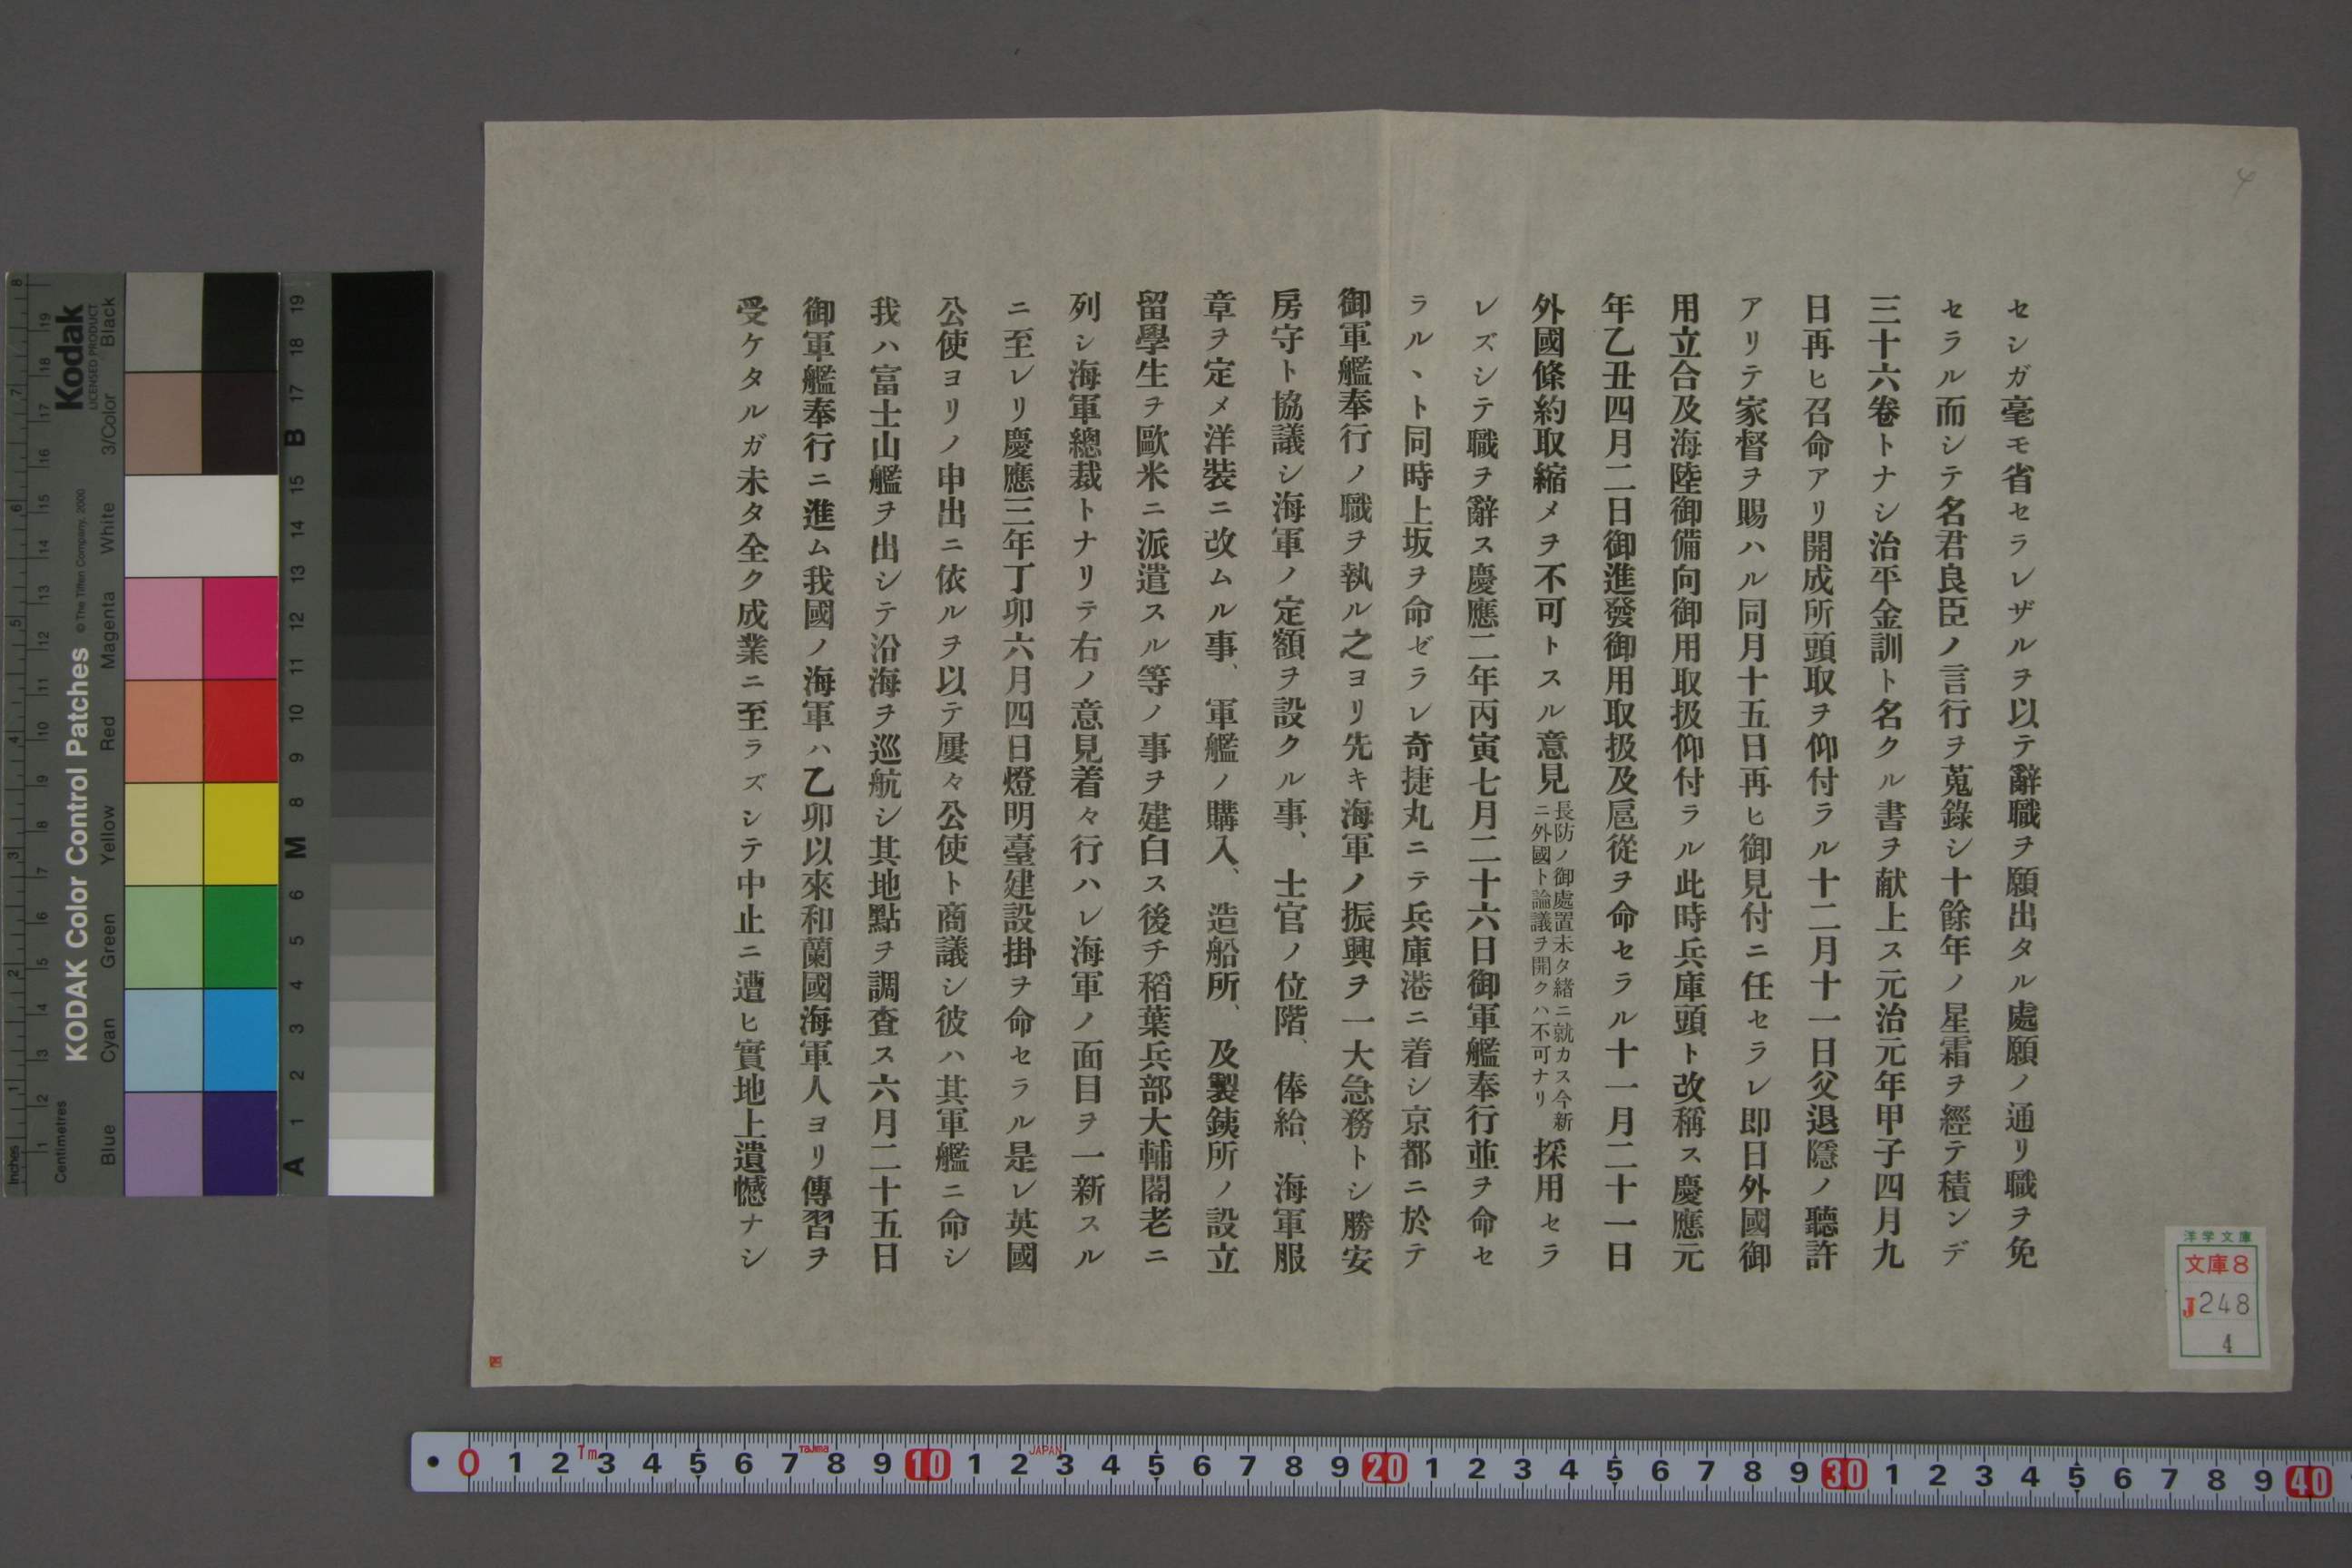 セシガ毫モ省セラレザルヲ以テ辭職ヲ願出タル處願ノ通リ職ヲ免
セラル而シテ名君良臣ノ言行ヲ蒐錄シ十餘年ノ星霜ヲ經テ積ンデ
三十六卷トナシ治平金訓ト名クル書ヲ献上ス元治元年甲子四月九
日再ヒ召命アリ開成所頭取ヲ仰付ラル十二月十一日父退隱ノ聽許
アリテ家督ヲ賜ハル同月十五日再ヒ御見付ニ任セラレ即日外國御
用立合及海陸御備向御用取扱仰付ラル此時兵庫頭ト改稱ス慶應元
年乙丑四月二日御進發御用取扱及扈從ヲ命セラル十一月二十一日
外國條約取縮メヲ不可トスル意見長防ノ御處置未タ緒ニ就カス今新ニ外國ト論議ヲ開クハ不可ナリ採用セラ
レズシテ職ヲ辭ス慶應二年丙寅七月二十六日御軍艦奉行並ヲ命セ
ラルヽト同時上坂ヲ命ゼラレ奇捷丸ニテ兵庫港ニ着シ京都ニ於テ
御軍艦奉行ノ職ヲ執ル之ヨリ先キ海軍ノ振興ヲ一大急務トシ勝安
房守ト協議シ海軍ノ定額ヲ設クル事、士官ノ位階、俸給、海軍服
章ヲ定メ洋裝ニ改ムル事、軍艦ノ購入、造船所、及製銕所ノ設立
留學生ヲ歐米ニ派遣スル等ノ事ヲ建白ス後チ稻葉兵部大輔閣老ニ
列シ海軍總裁トナリテ右ノ意見着々行ハレ海軍ノ面目ヲ一新スル
ニ至レリ慶應三年丁卯六月四日燈明臺建設掛ヲ命セラル是レ英國
公使ヨリノ申出ニ依ルヲ以テ屢々公使ト商議シ彼ハ其軍艦ニ命シ
我ハ富士山艦ヲ出シテ沿海ヲ巡航シ其地點ヲ調査ス六月二十五日
御軍艦奉行ニ進ム我國ノ海軍ハ乙卯以來和蘭國海軍人ヨリ傳習ヲ
受ケタルガ未タ全ク成業ニ至ラズシテ中止ニ遭ヒ實地上遺憾ナシ
4
洋学文庫
文庫8
J248
4
Kodak
LICENSED PRODUCT
KODAK Color Control Patches
© The Tiffen Company, 2000
Inches
Centimetres
Blue Cyan Green Yellow Red Magenta White 3/Color Black
A 1 2 3 4 5 6 M 8 9 10 11 12 13 14 15 B 17 18 19
0 1 2 3 4 5 6 7 8 9 10 1 2 3 4 5 6 7 8 9 20 1 2 3 4 5 6 7 8 9 30 1 2 3 4 5 6 7 8 9 40
1m
Tajima
JAPAN